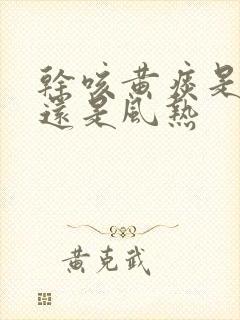 幹咳黃痰是
還是風熱
黃克武